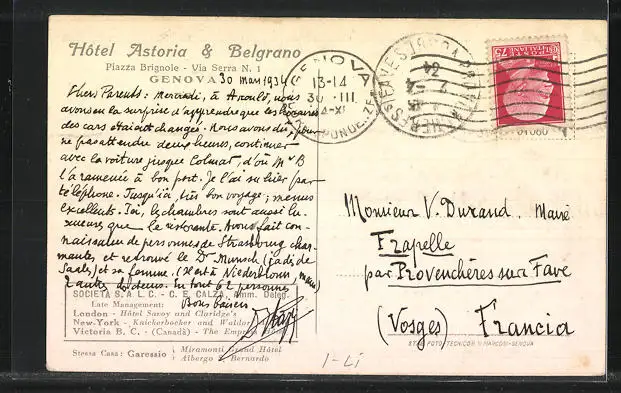 Hôtel Astoria & Belgrano
Piazza Brignole - Via Serra N. 1
GENOVA 30 mars 1934
Chers Parents: Mercredi, à Arould, nous
avons eu la surprise d'apprendre que les horaires
des cars étaient changés. Nous avons dû, pour
ne pas attendre deux heures, continuer
avec la voiture jusque Colmar, d'où Mr B
l'a ramenée à bon port. Je l'ai su hier par
téléphone. Jusqu'ici, très bon voyage; menus
excellents. Ici, les chambres sont aussi lu-
xueuses que le restorante. Avons fait con-
naissance de personnes de Strasbourg char-
mantes et retrouvé le Dr Munsch (jadis de
Saales) et sa femme. (Il est à Niederbronn,
2 autres docteurs. En tout 62 personnes
Bons baisers
SOCIETÀ S. A. L. C. - C. E. CALZA, Amm. Deleg.
Late Management:
London - Hôtel Savoy and Claridge's
New-York - Knickerbocker and Waldorf
Victoria B. C. - (Canadà) - The Empress
Stessa Casa: Garessio
Miramonti Grand Hôtel
Albergo Bernardo
GENOVA
13-14
30 · III
75
POSTE ITALIANE
Monsieur V. Durand, Maire
Frapelle
par Provenchères sur Fave
(Vosges) Francia
1-Li